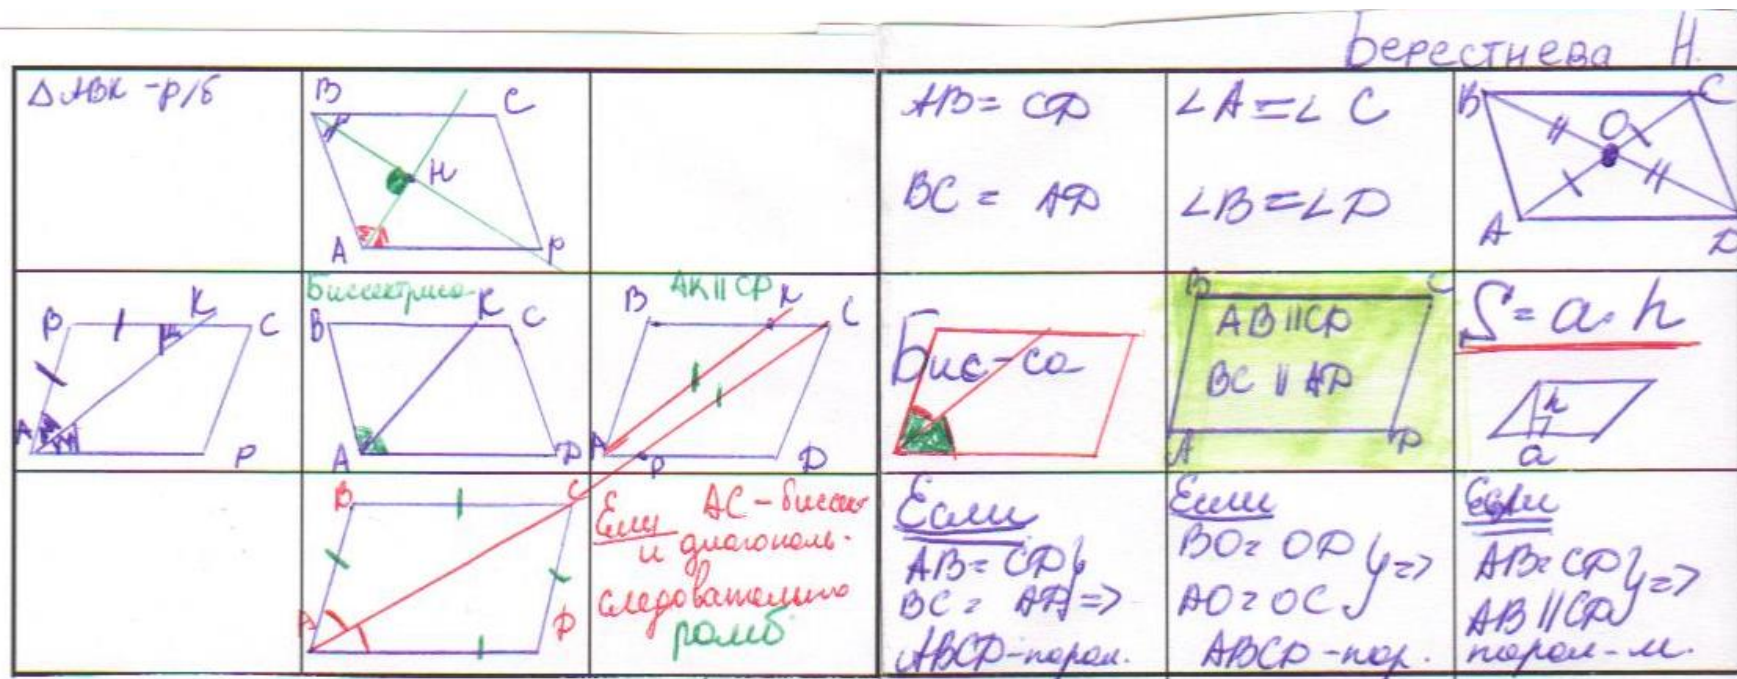 Берестнева Н.
△ABK -р/б
B
C
H
A
P
AB = CD
BC = AD
∠A = ∠C
∠B = ∠D
B
C
O
A
D
B
K
C
A
P
Биссектриса
B
K
C
A
D
AK || CP
B
K
C
A
P
D
Бис-са
B
C
AB || CD
BC || AD
A
D
S = a · h
h
a
B
C
A
D
Если AC - биссект
и диагональ-
следовательно
ромб
Если
AB = CD
BC = AD } =>
ABCD - парал.
Если
BO = OD } =>
AO = OC
ABCD - пар.
Если
AB = CD } =>
AB || CD
парал-м.